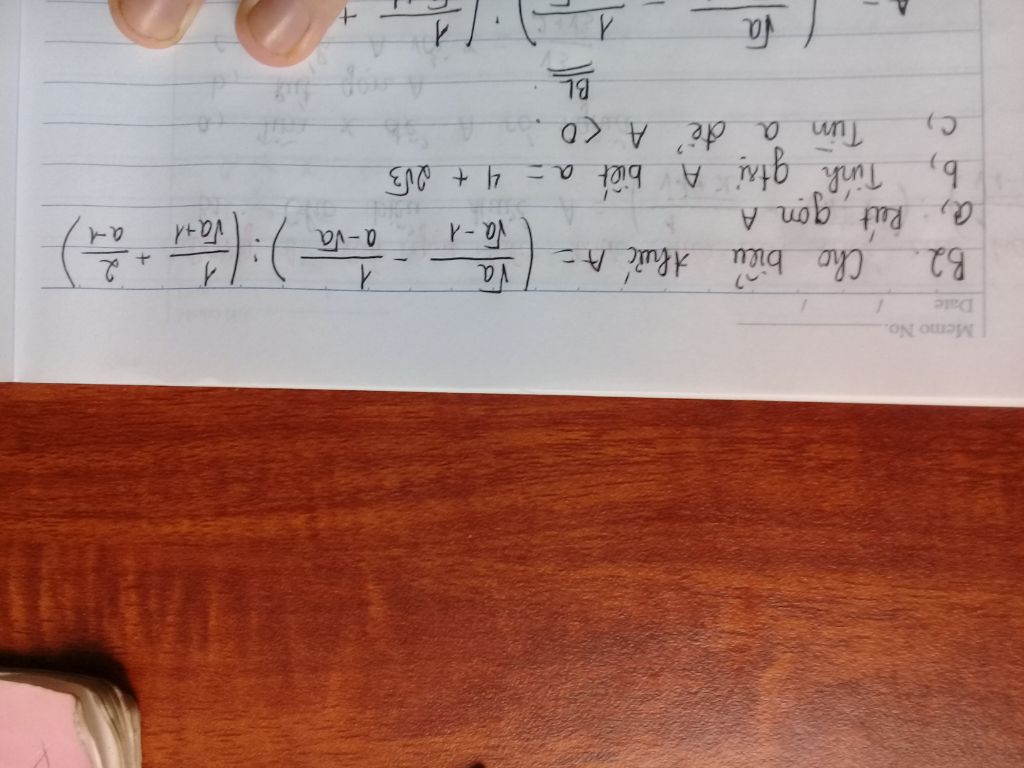 Memo No.
Date / /
B2. Cho biểu thức A = (√a/(√a-1) - 1/(a-√a)) : (1/(√a+1) + 2/(a-1))
a, Rút gọn A
b, Tính gtrị A biết a = 4 + 2√3
c, Tìm a để A < 0.
BL
A = (√a - 1) : (1 +